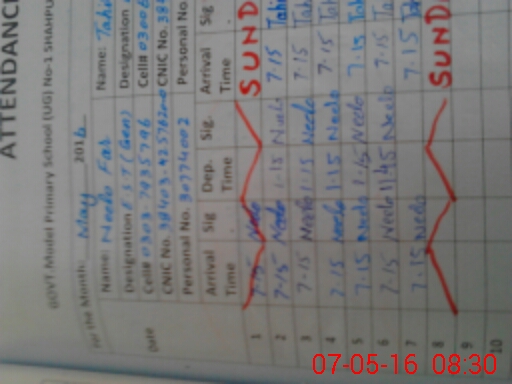 ATTENDANC
GOVT.Model Primary School (UG) No-1 SHAHPU
For the Month: May 2016
Name: Neelo Name:
Designation EST (Gen) Designation
Cell# 0303-7935796 Cell# 0300
CNIC No. 38403- CNIC No. 38
Personal No. 30774002 Personal No.
Date Arrival Time Sig Dep. Time Sig. Arrival Time Sig
1 7-15 Neelo SUND
2 7-15 Neelo 1-15 Neelo 7-15 Tahi
3 7-15 Neelo 1-15 Neelo 7-15 Tah
4 7-15 Neelo 1-15 Neelo 7-15 Tah
5 7-15 Neelo 1-15 Neelo 7-15 Tah
6 7-15 Neelo 11-45 Neelo 7-15 Ta
7 7-15 Neelo 7-15
8 SUND
9
10
07-05-16 08:30